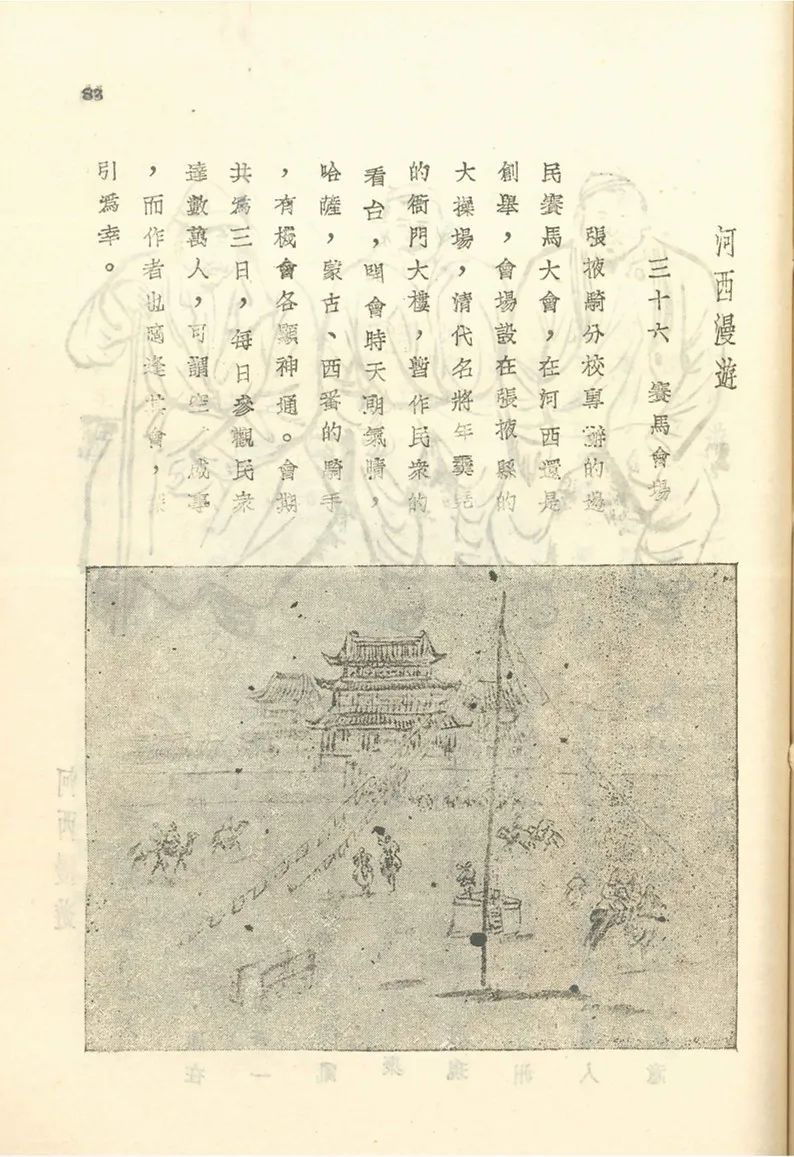 83
河西漫遊
三十六　賽馬會場
張掖騎分校專辦的邊
民賽馬大會，在河西還是
創舉，會場設在張掖縣的
大操場，清代名將年羹堯
的衙門大樓，暫作民衆的
看台，開會時天朗氣晴，
哈薩，蒙古、西番的騎手
，有機會各顯神通。會期
共爲三日，每日參觀民衆
達數萬人，可謂空　盛事
，而作者也適逢其會，
引爲幸。